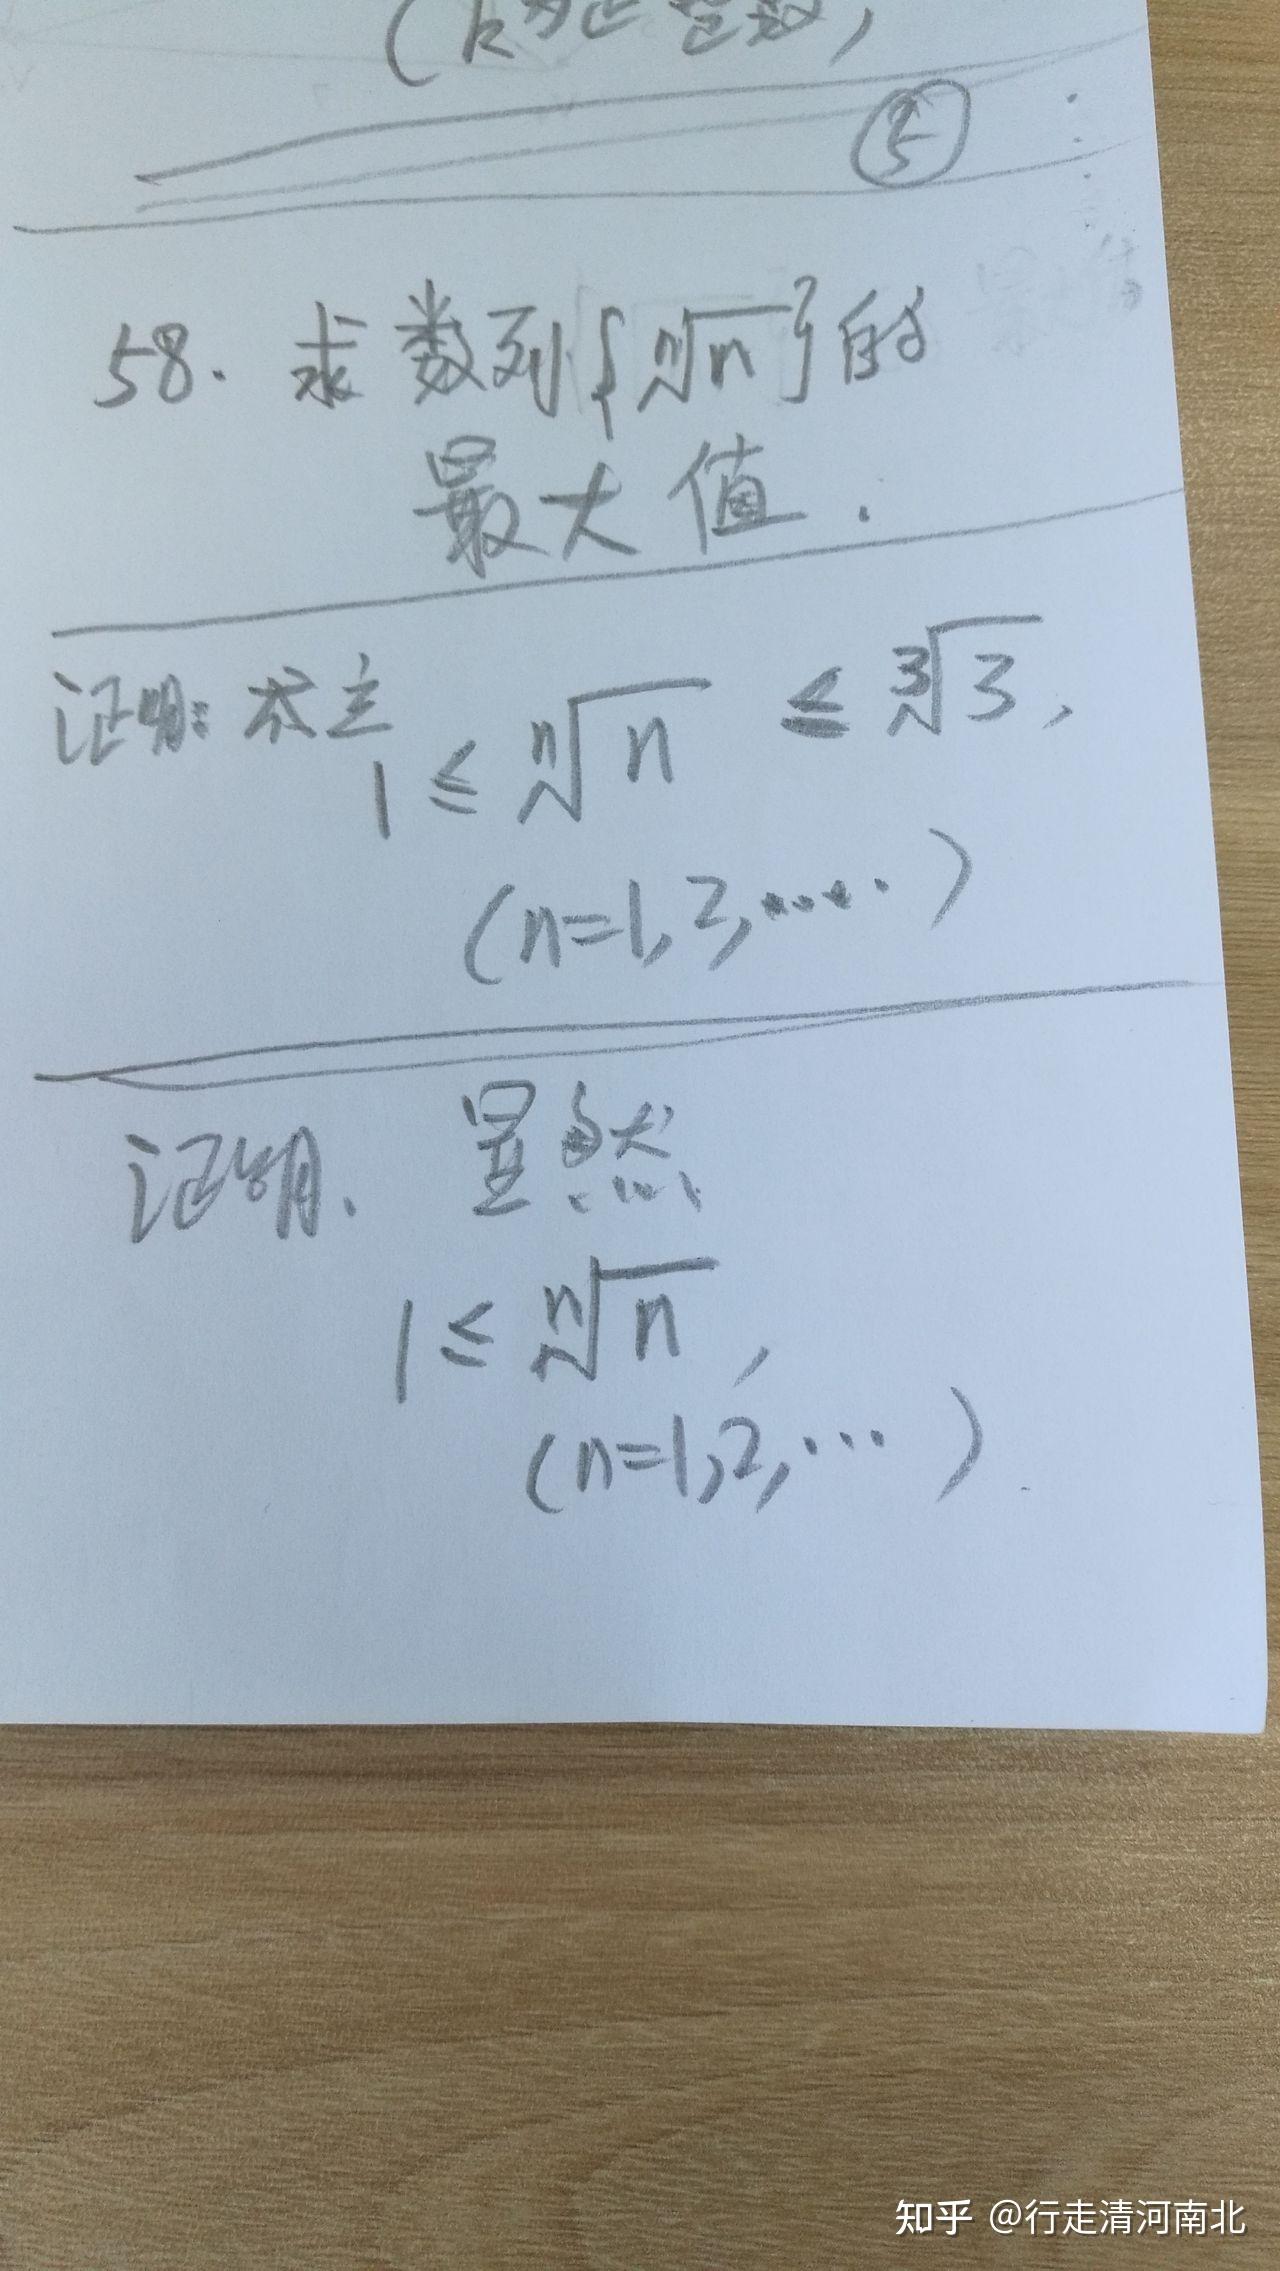 (k为正整数,
⑤
58. 求数列{ⁿ√n}的
最大值.
证明:
1 ≤ ⁿ√n ≤ ³√3,
(n=1,2,.....)
证明. 显然
1 ≤ ⁿ√n,
(n=1,2,...)
知乎 @行走清河南北